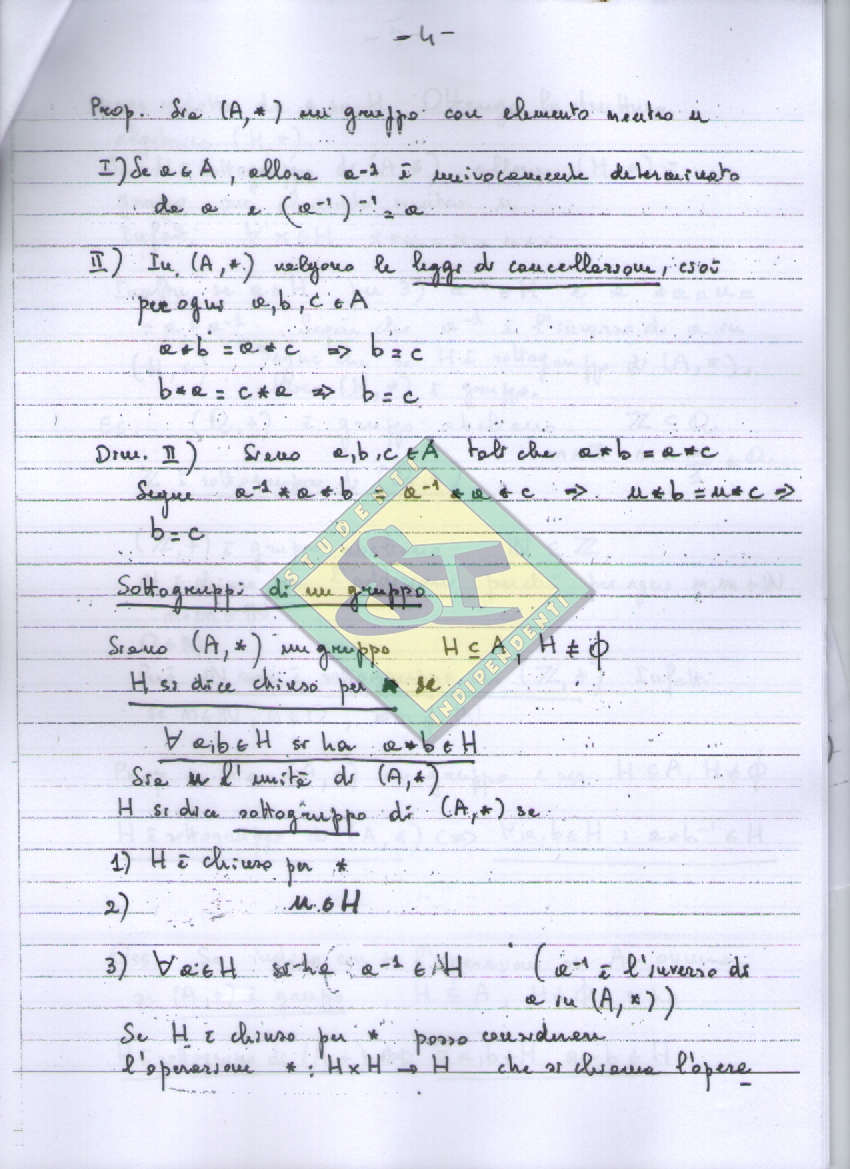 -4-
Prop. Sia (A,*) un gruppo con elemento neutro u
I) Se a∈A, allora a-1 è univocamente determinato
da a e (a-1)-1=a
II) In (A,*) valgono le leggi di cancellazione, cioè
per ogni a,b,c∈A
a*b=a*c => b=c
b*a=c*a => b=c
Dim. II) Siano a,b,c∈A tali che a*b=a*c
Segue a-1*a*b=a-1*a*c => u*b=u*c =>
b=c
Sottogruppi di un gruppo
Siano (A,*) un gruppo H⊆A, H≠ϕ
H si dice chiuso per * se
∀ a,b∈H si ha a*b∈H
Sia u l'unità di (A,*)
H si dice sottogruppo di (A,*) se
1) H è chiuso per *
2) u∈H
3) ∀ a∈H si ha a-1∈H (a-1 è l'inverso di
a in (A,*))
Se H è chiuso per * posso considerare
l'operazione *: H×H → H che si chiama l'opera
STUDENTI
SI
INDIPENDENTI